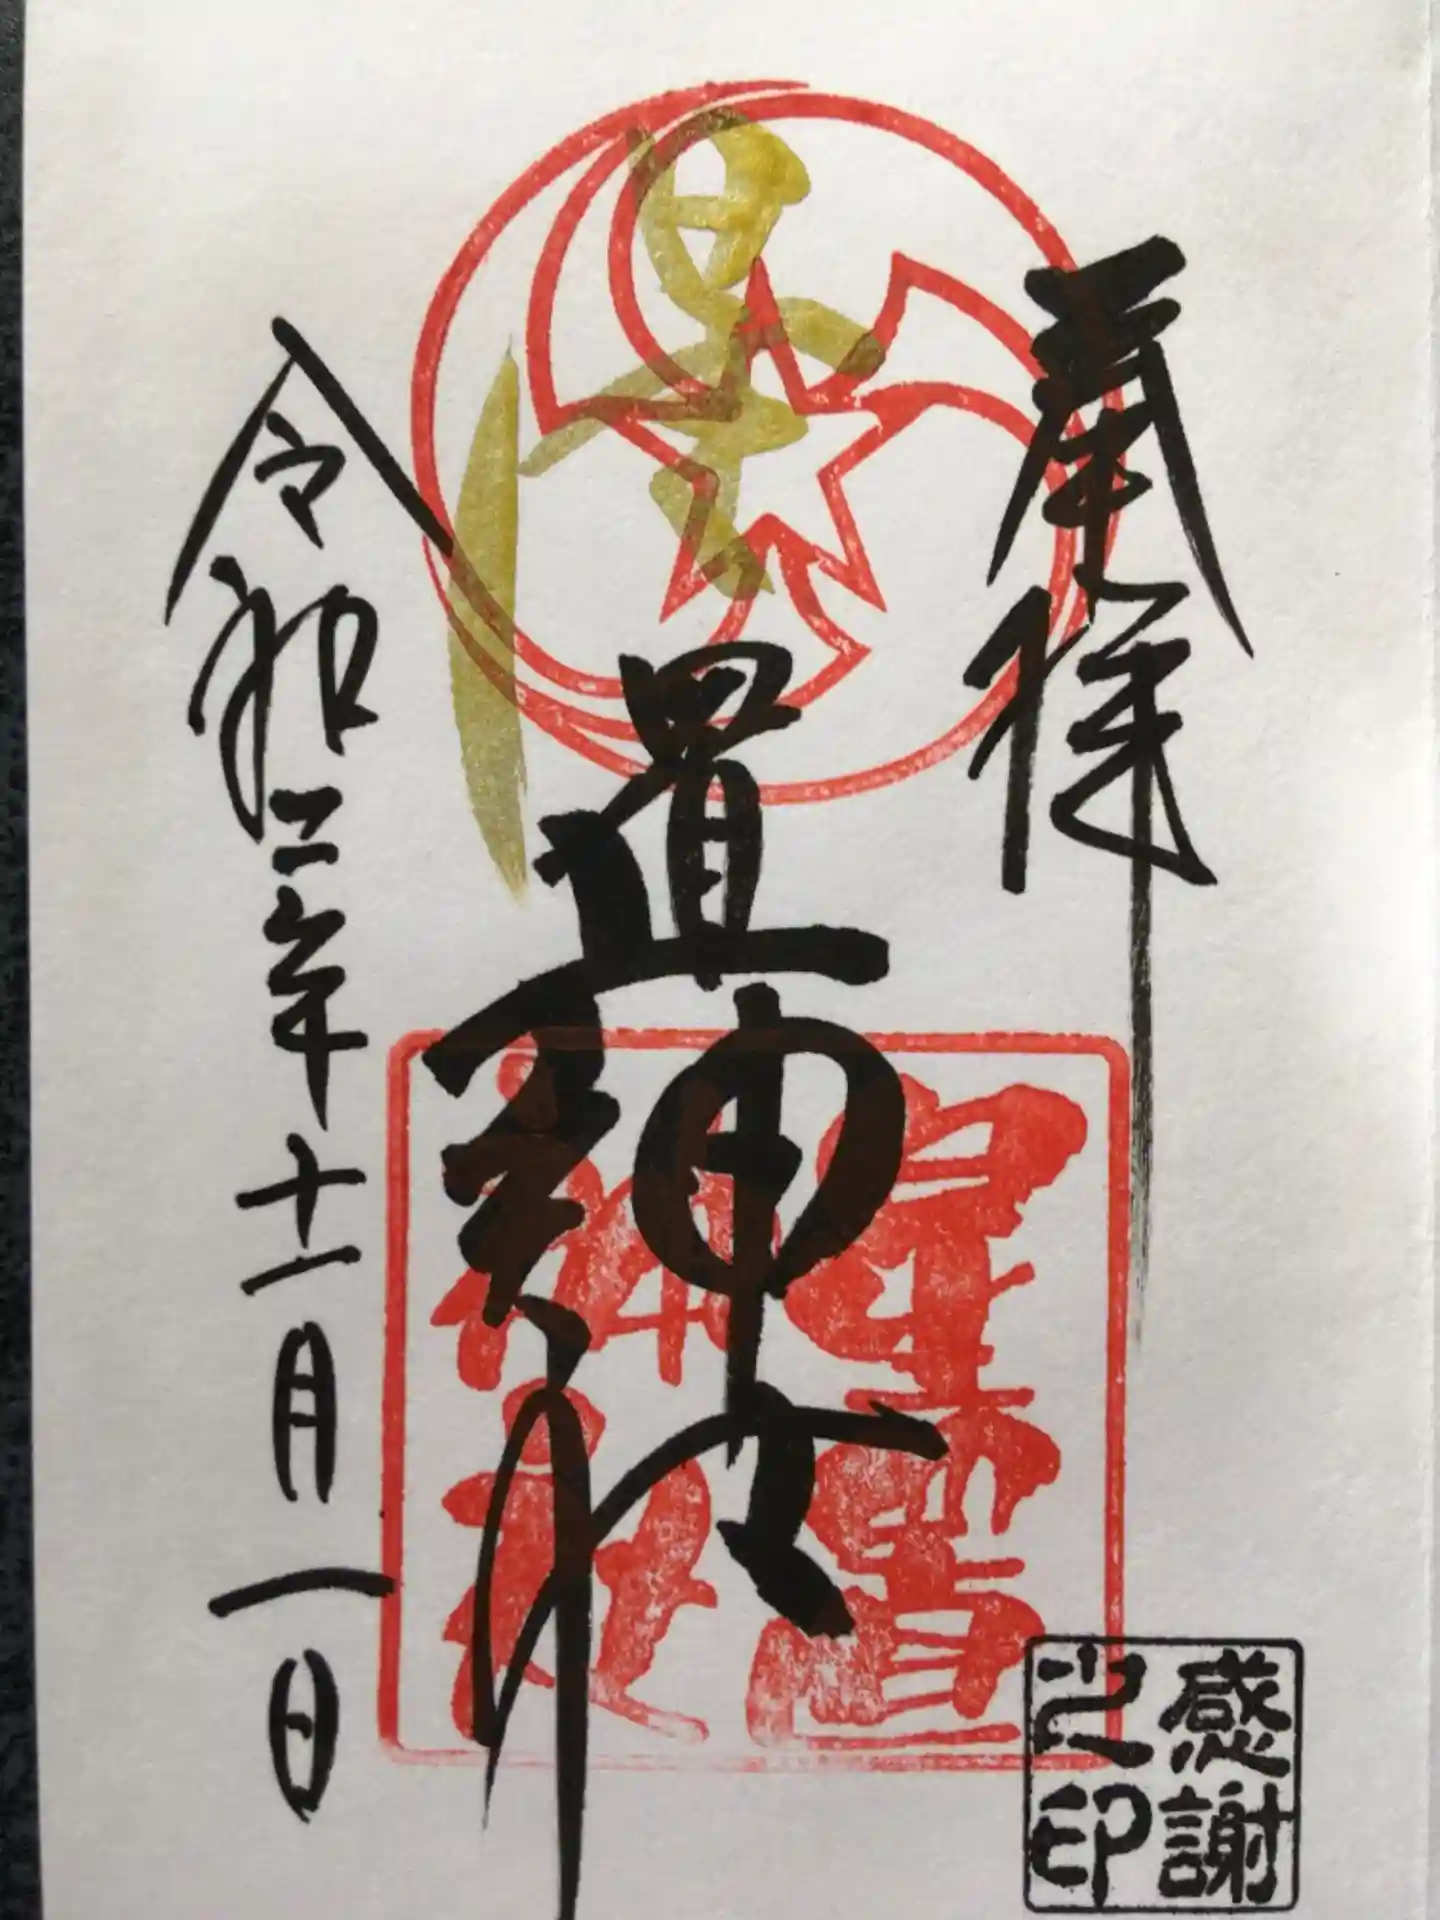 奉拝
星置神社
星置
神社
令和二年十一月一日
感謝
之印